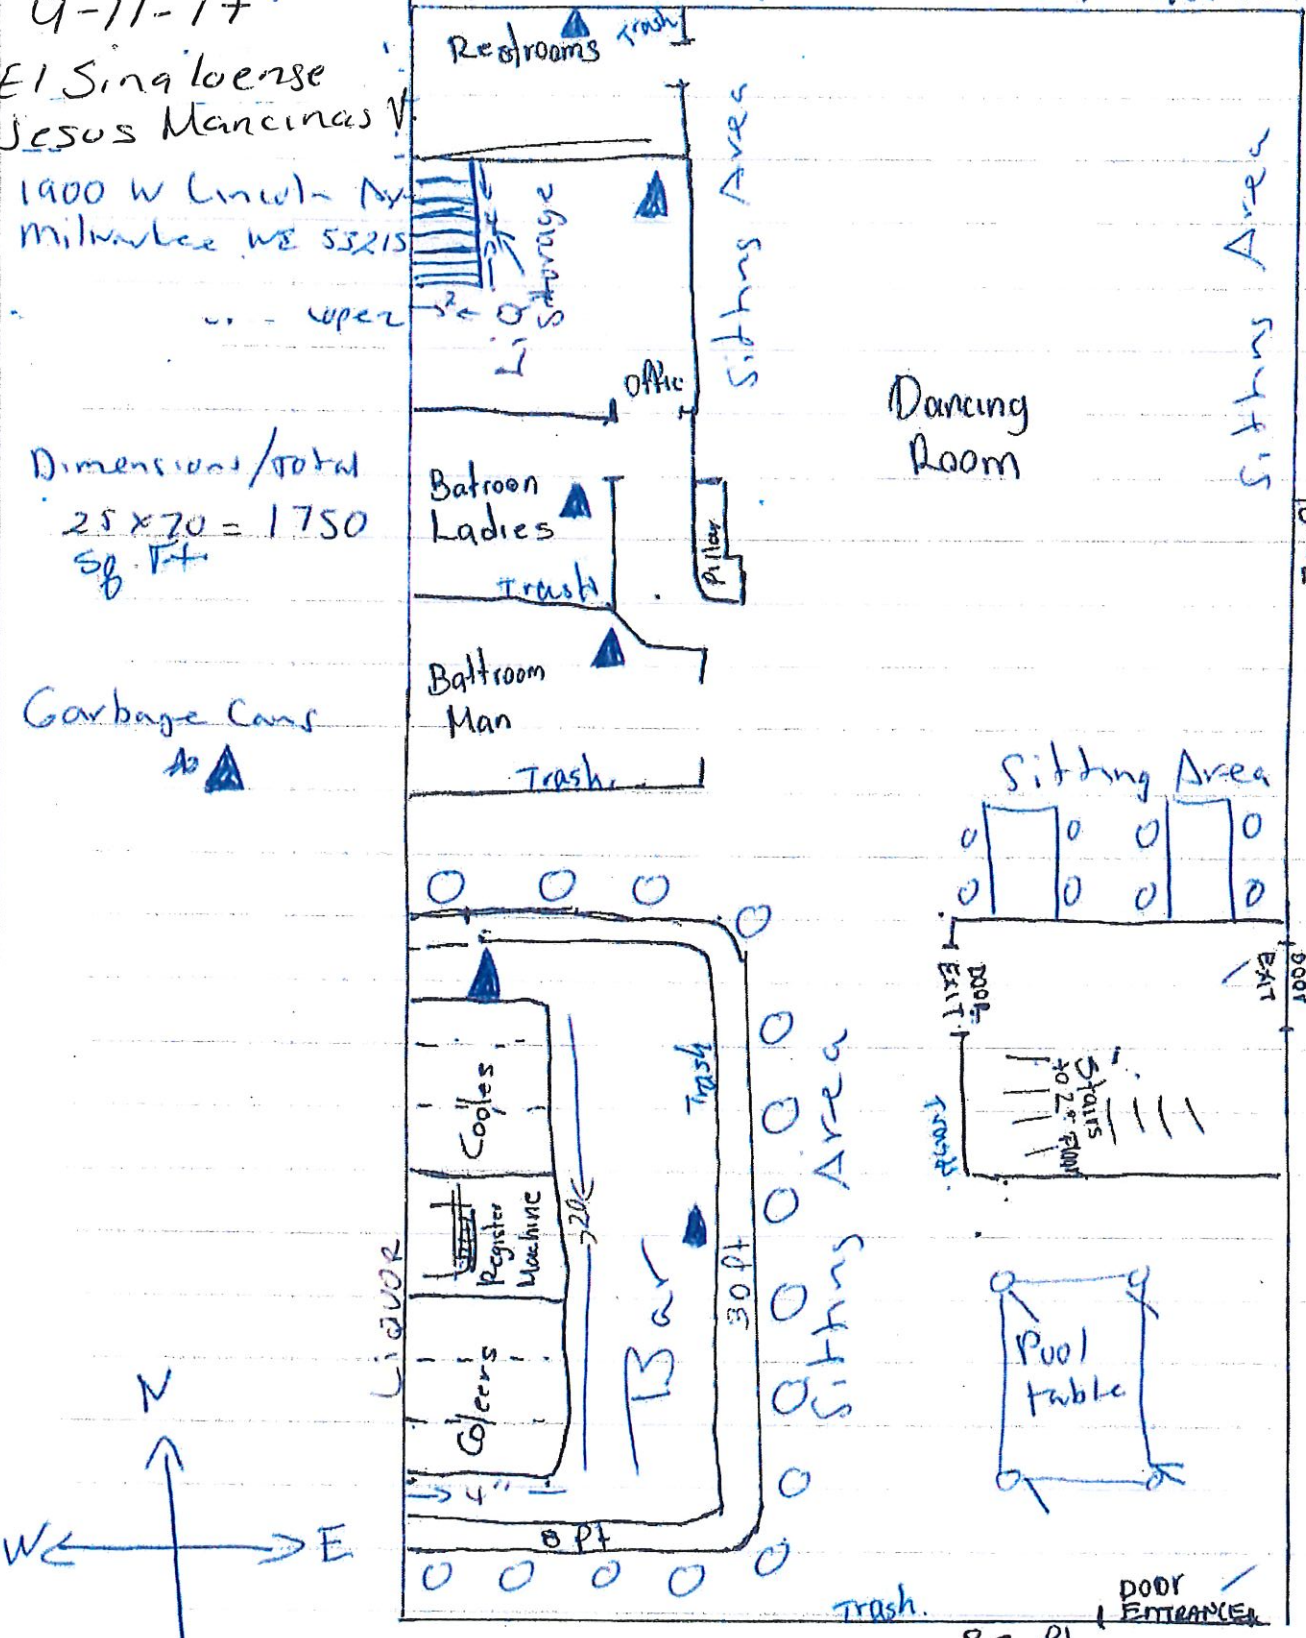 El Sinaloense
Jesus Mancinas V.
1900 W Lincoln Av
Milwaukee WI 53215
Dimensions/total
25 x 70 = 1750
Sq. Ft
Garbage Cans
N
W
E
Restrooms
Trash
Storage
LiQ
2
Offic
Sitting Area
Sitting Area
Dancing
Room
Batroon
Ladies
Trash
Pillar
Battroom
Man
Trash.
Sitting Area
DOOR
EXIT
DOOR
EXIT
Stairs
to 2º Floor
Trash.
Cooles
Register
Machine
Coleers
LiQUOR
20
Bar
Trash
30 Ft
4"
8 Ft
Sitting Area
Pool
table
Trash.
DOOR
ENTRANCE